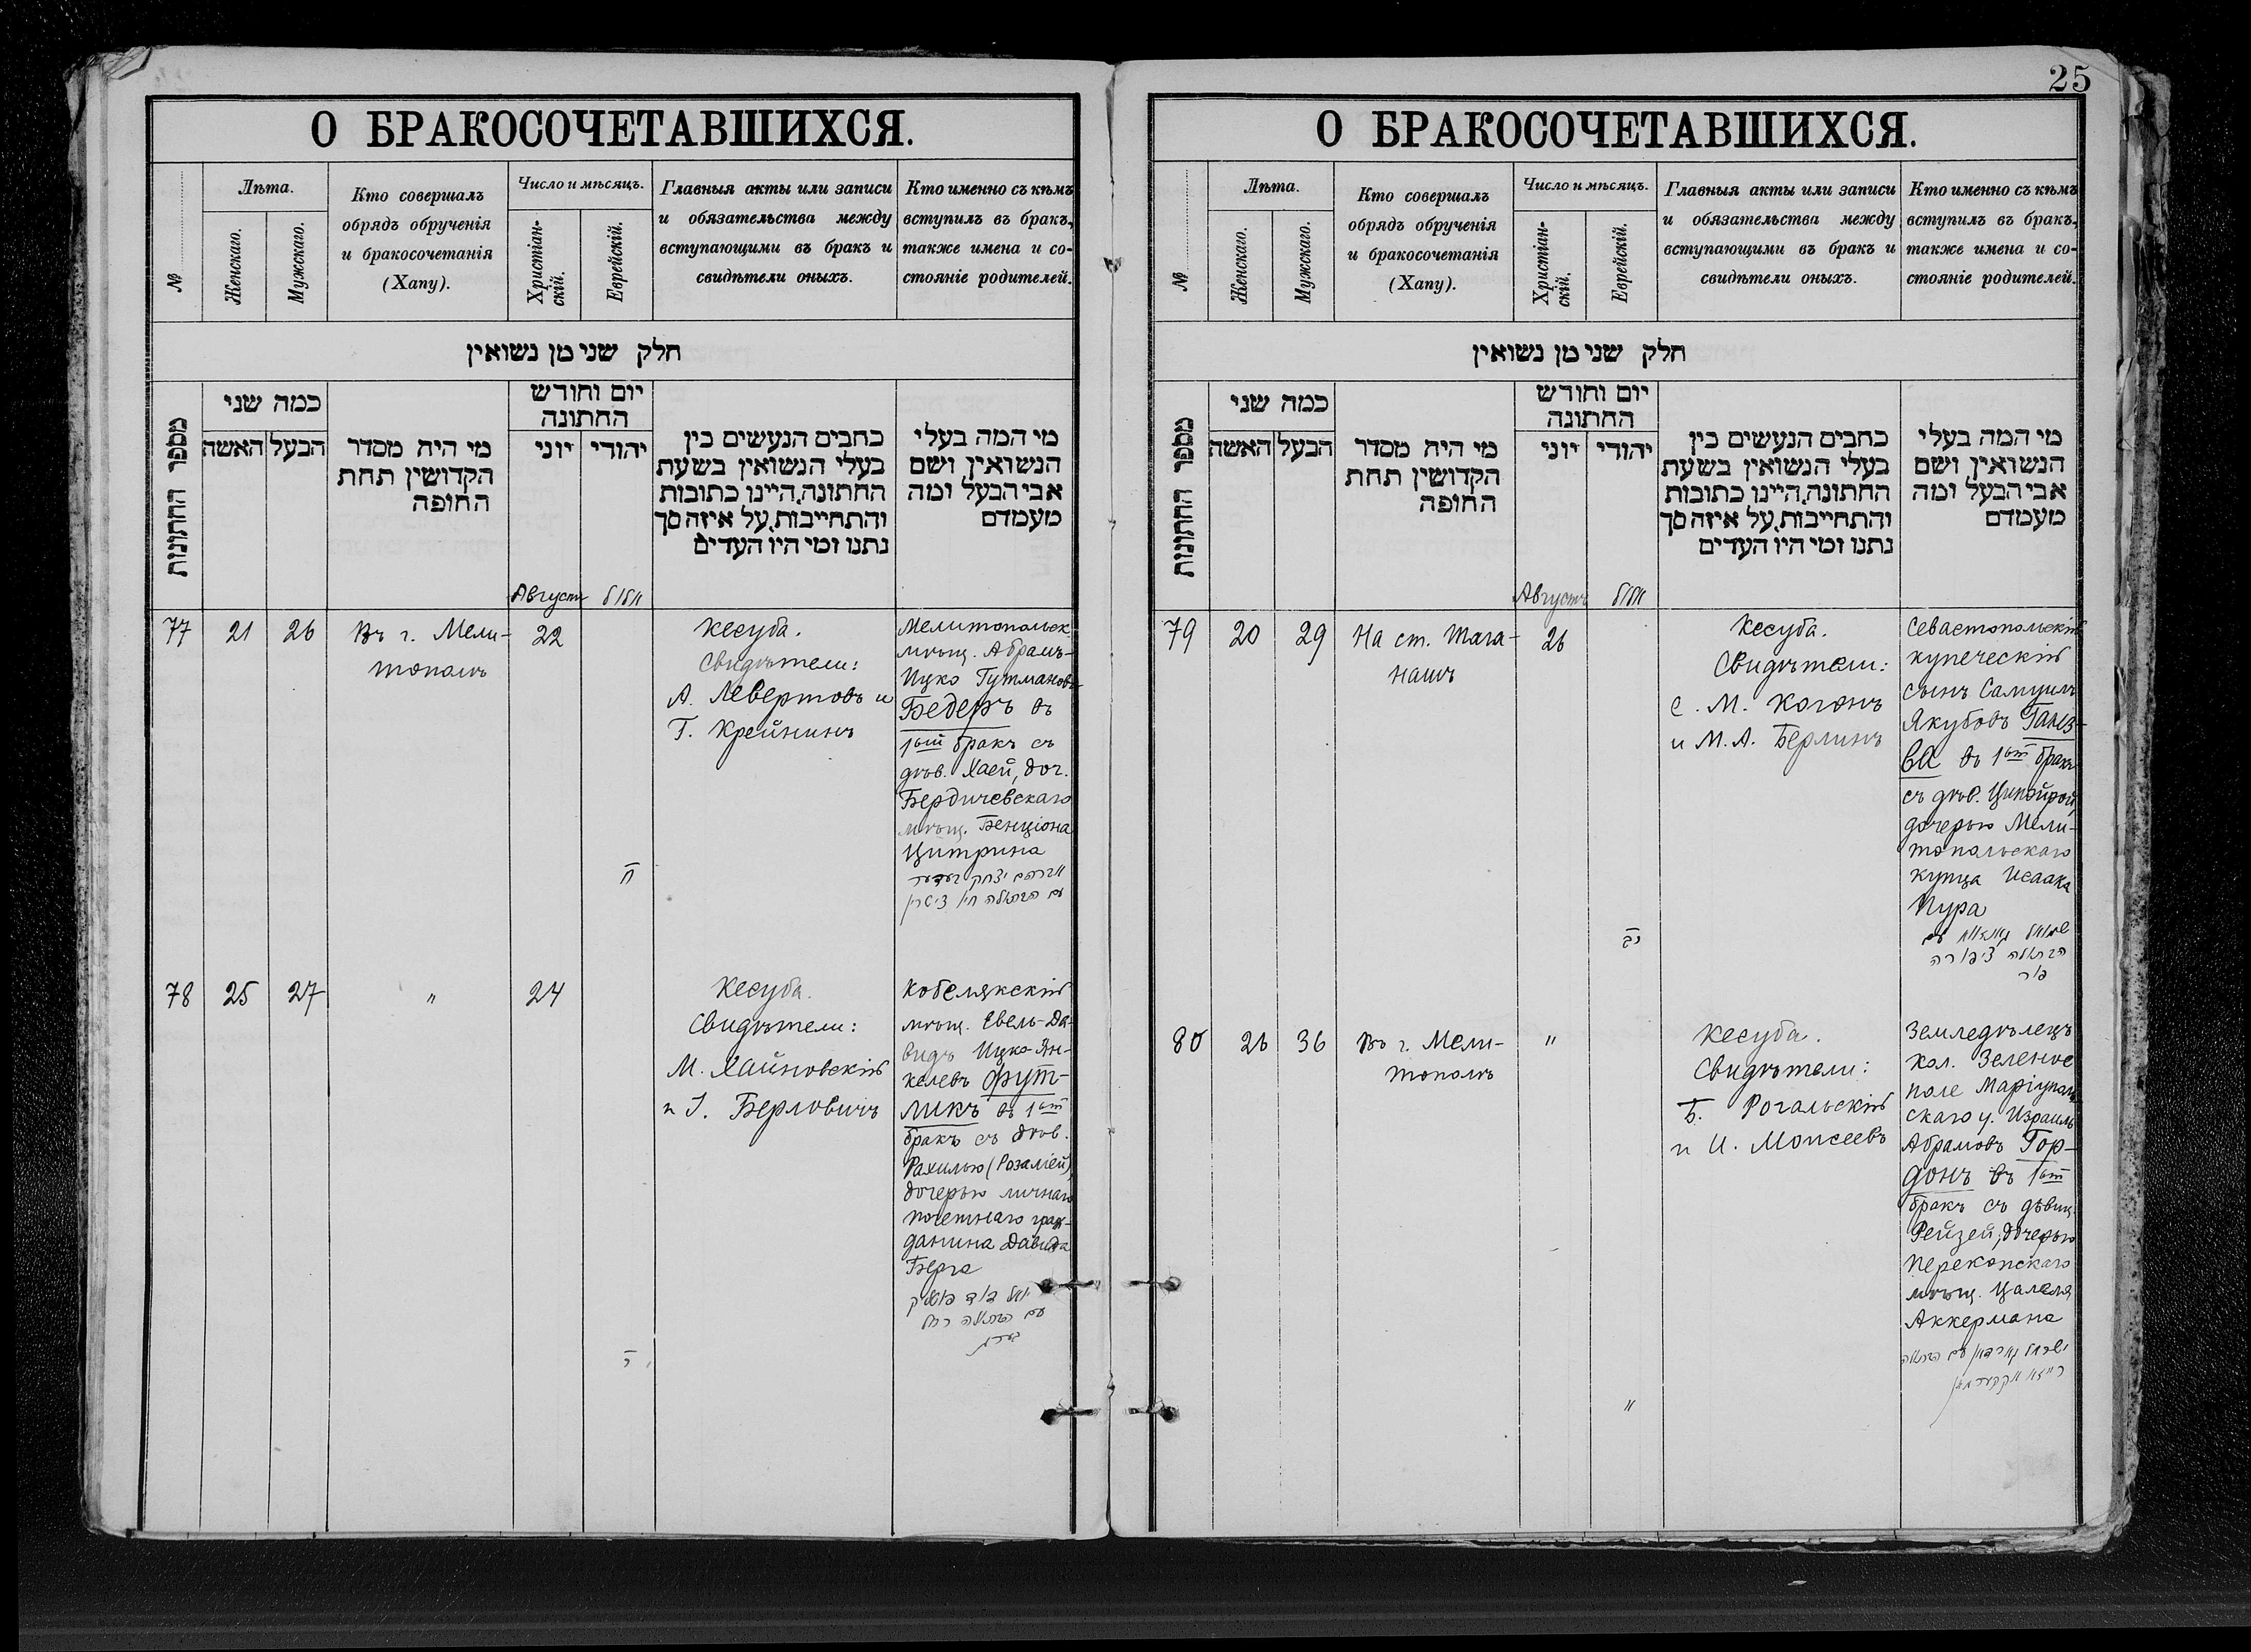 О БРАКОСОЧЕТАВШИХСЯ.
№
Лѣта.
Женскаго.
Мужскаго.
Кто совершалъ
обрядъ обрученія
и бракосочетанія
(Хапу).
Число и мѣсяцъ.
Христіан-
скій.
Еврейскій.
Главныя акты или записи
и обязательства между
вступающими въ бракъ и
свидѣтели оныхъ.
Кто именно съ кѣмъ
вступилъ въ бракъ,
также имена и со-
стояніе родителей.
חלק שני מן נשואין
מספר החתונות
כמה שני
האשה
הבעל
מי היה מסדר
הקדושין תחת
החופה
יום וחודש
החתונה
יוני
יהודי
כתבים הנעשים בין
בעלי הנשואין בשעת
החתונה, היינו כתובות
והתחייבות, על איזה סך
נתנו ומי היו העדים
מי המה בעלי
הנשואין ושם
אבי הבעל ומה
מעמדם
Августъ אלול
77
21
26
Въ г. Мели-
тополѣ
22
ח
Кесуба.
Свидѣтели:
А. Левертовъ и
Г. Крейнинъ
Мелитопольск.
мѣщ. Абрамъ-
Ицко Гутмановъ
Бедеръ въ
1ый бракъ съ
дѣв. Хаей, доч.
Бердичевскаго
мѣщ. Бенціона
Цитрина
אברהם יצחק בעדער
עם הבתולה חיה ציטרין
78
25
27
"
24
י
Кесуба.
Свидѣтели:
М. Хайновскій
и I. Берловичъ
Кобелякскій
мѣщ. Евель-Да-
видъ Ицко-Ян-
келевъ Фут-
ликъ въ 1ый
бракъ съ дѣв.
Рахилью (Розаліей),
дочерью личнаго
почетнаго граж-
данина Давида
Берга
דוד פוטליק
עם הבתולה רחל
בערג
25
О БРАКОСОЧЕТАВШИХСЯ.
№
Лѣта.
Женскаго.
Мужскаго.
Кто совершалъ
обрядъ обрученія
и бракосочетанія
(Хапу).
Число и мѣсяцъ.
Христіан-
скій.
Еврейскій.
Главныя акты или записи
и обязательства между
вступающими въ бракъ и
свидѣтели оныхъ.
Кто именно съ кѣмъ
вступилъ въ бракъ,
также имена и со-
стояніе родителей.
חלק שני מן נשואין
מספר החתונות
כמה שני
האשה
הבעל
מי היה מסדר
הקדושין תחת
החופה
יום וחודש
החתונה
יוני
יהודי
כתבים הנעשים בין
בעלי הנשואין בשעת
החתונה, היינו כתובות
והתחייבות, על איזה סך
נתנו ומי היו העדים
מי המה בעלי
הנשואין ושם
אבי הבעל ומה
מעמדם
Августъ אלול
79
20
29
На ст. Тага-
нашъ
26
יב
Кесуба.
Свидѣтели:
С. М. Коганъ
и М. А. Берлинъ
Севастопольскій
купеческій
сынъ Самуилъ
Якубовъ Ганз-
ва въ 1ый бракъ
съ дѣв. Ципойрой,
дочерью Мели-
топольскаго
купца Исаака
Пура
שמואל עם
הבתולה ציפורה
פור
80
26
36
Въ г. Мели-
тополѣ
"
"
Кесуба.
Свидѣтели:
Б. Рогальскій
и И. Моисеевъ
Земледѣлецъ
кол. Зеленое
поле Маріуполь-
скаго у. Израиль
Абрамовъ Гор-
донъ въ 1ый
бракъ съ дѣвиц.
Рейзей, дочерью
Перекопскаго
мѣщ. Цалеля
Аккермана
ישראל גארדאן עם הבתולה
רייזא אקקערמאן